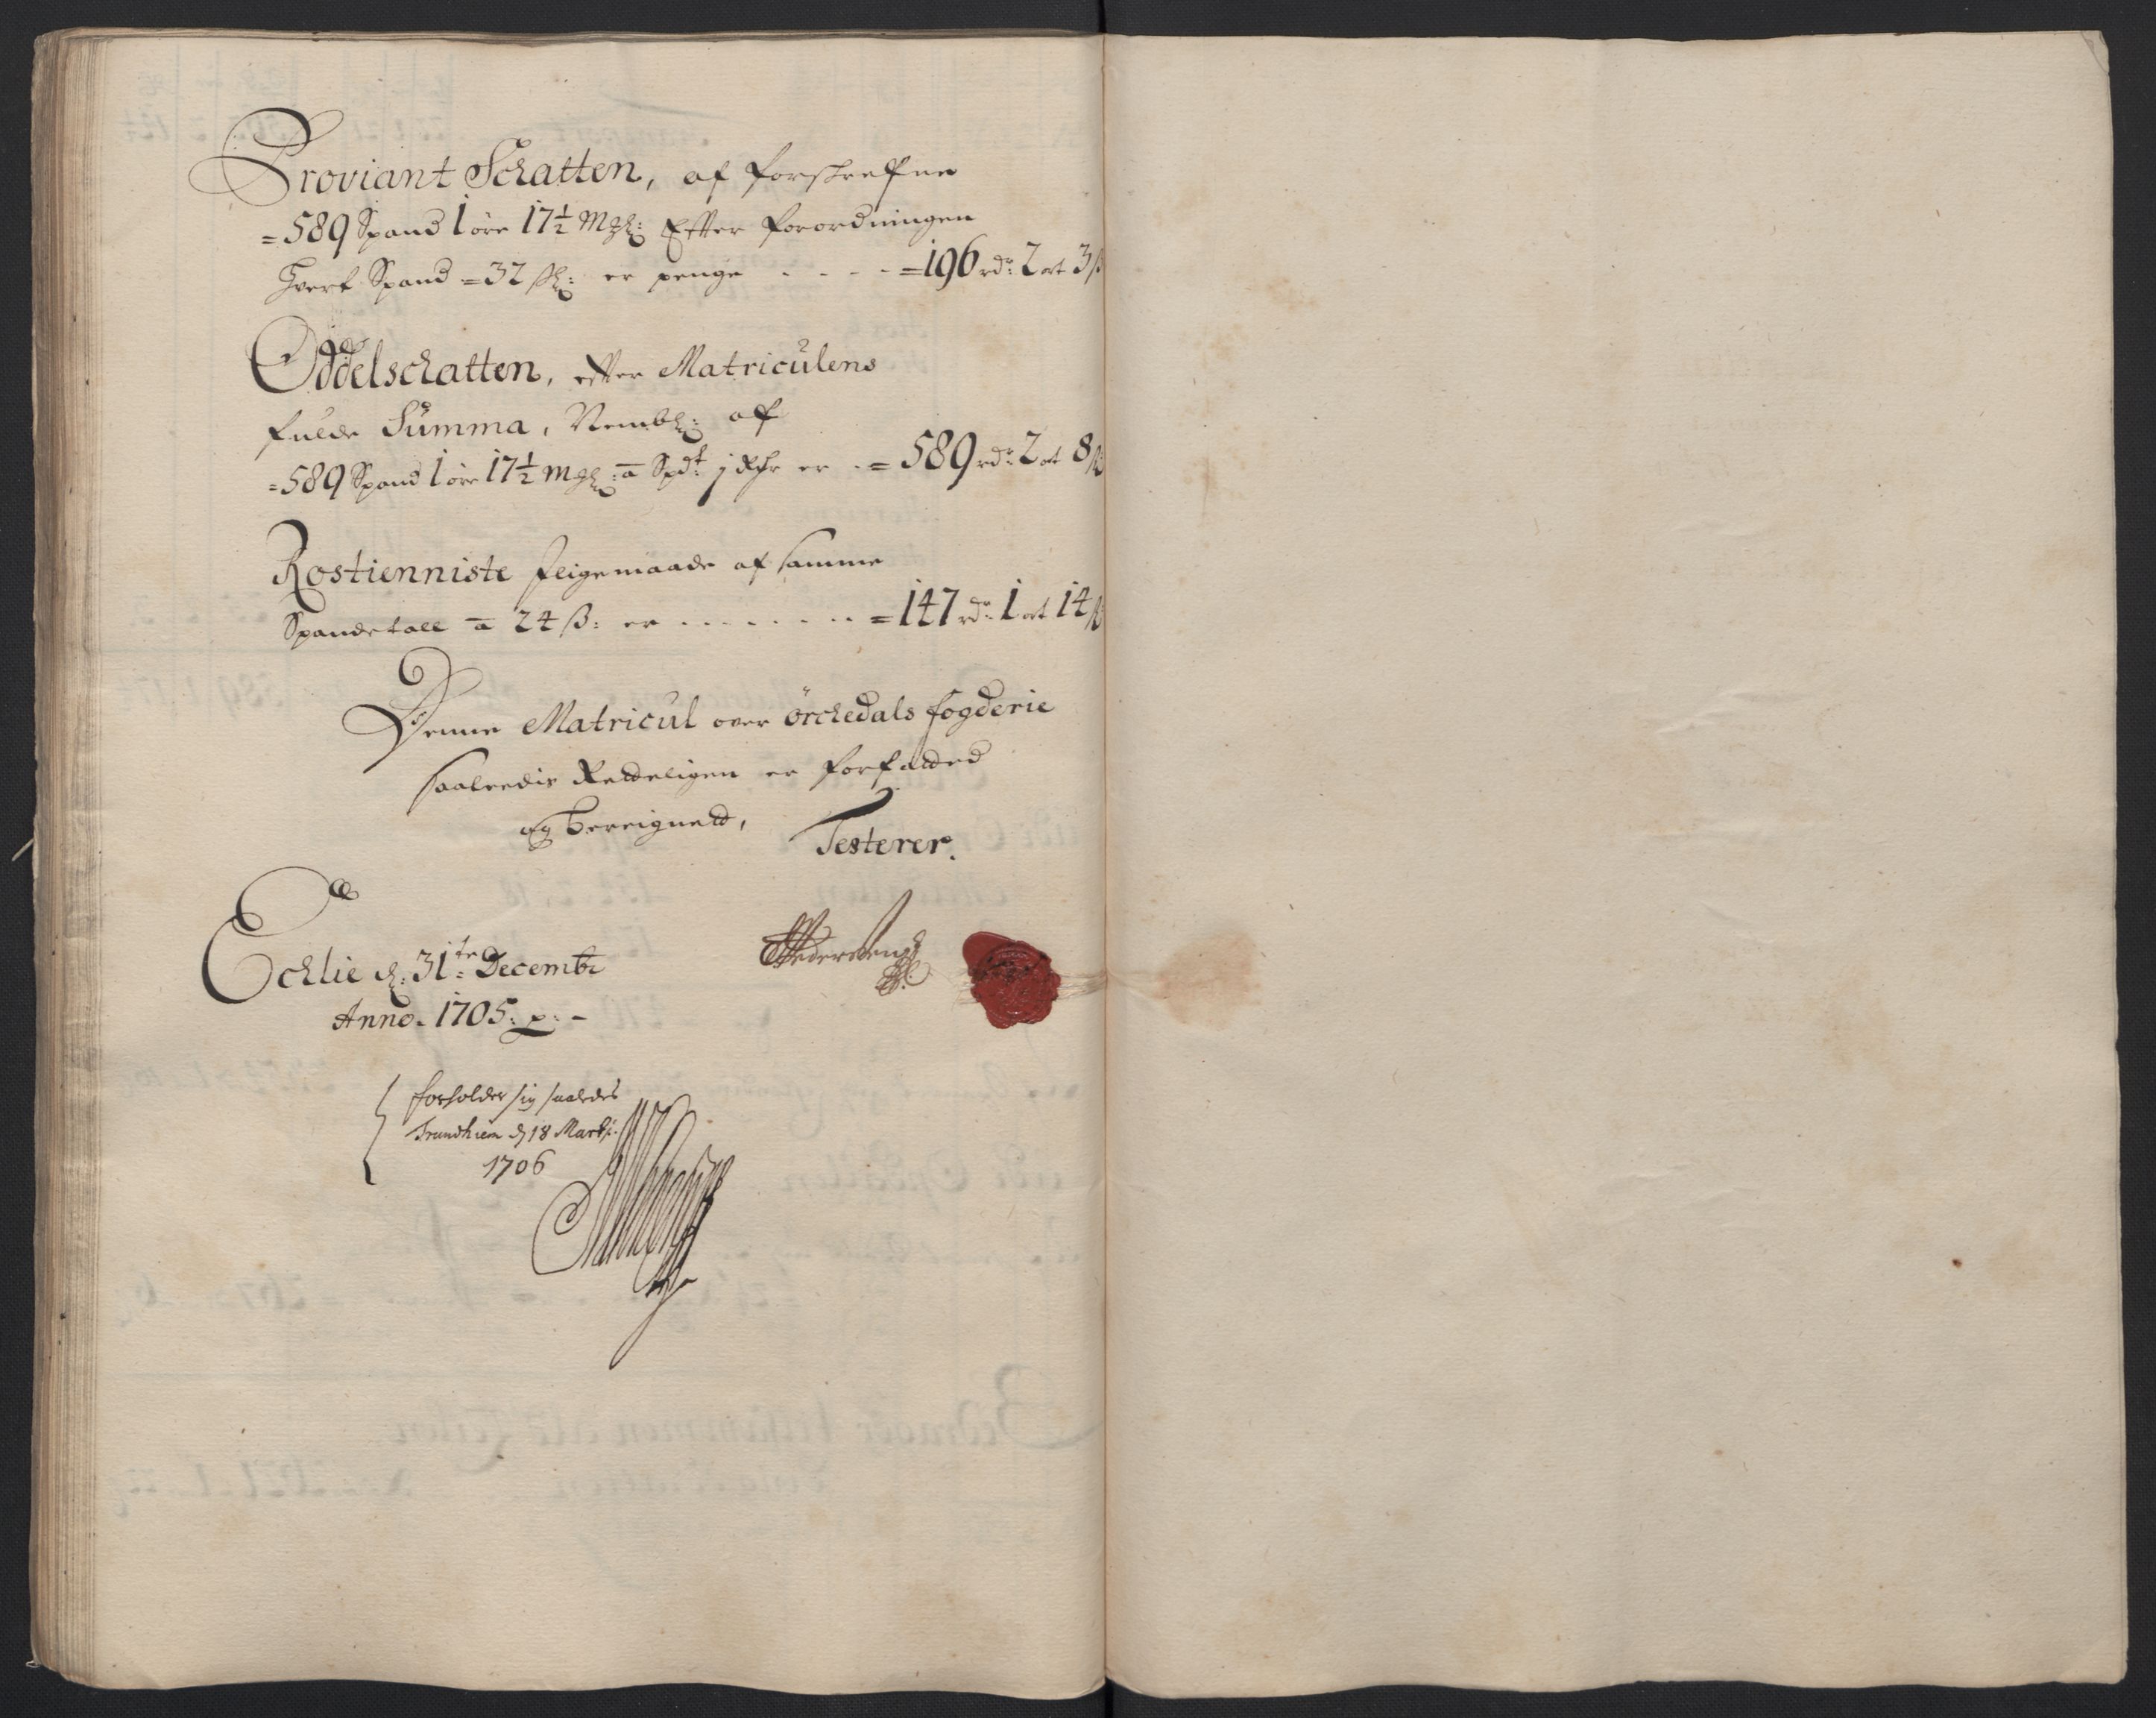 Proviant Schatten, af forskrefne
=589 Spand 1 øre 17½ mgl: Efter forordningen
Hvert Spand =32 ßl: er penge - - - - =196 rdr: 2 ort 3 ß
Oddelschatten, efter Matriculens
fulde Summa, Nembl: af
=589 Spand 1 øre 17½ mgl: a Spdt: 1 Rdr er - = 589 rdr: 2 ort 8 ß
Rostienniste ligemaade af samme
Spandetall a 24 ß: er - - - - - - - =147 rdr: 1 ort 14 ß
Denne Matricul over örchedals fogderie
saaledis Retteligen er forfatted
og Bereignett,
Testerer.
Echlie d: 31te Decembr
Anno. 1705: p: -
forholder sig saaledes
Trundhiem d 18 Marti:
1706